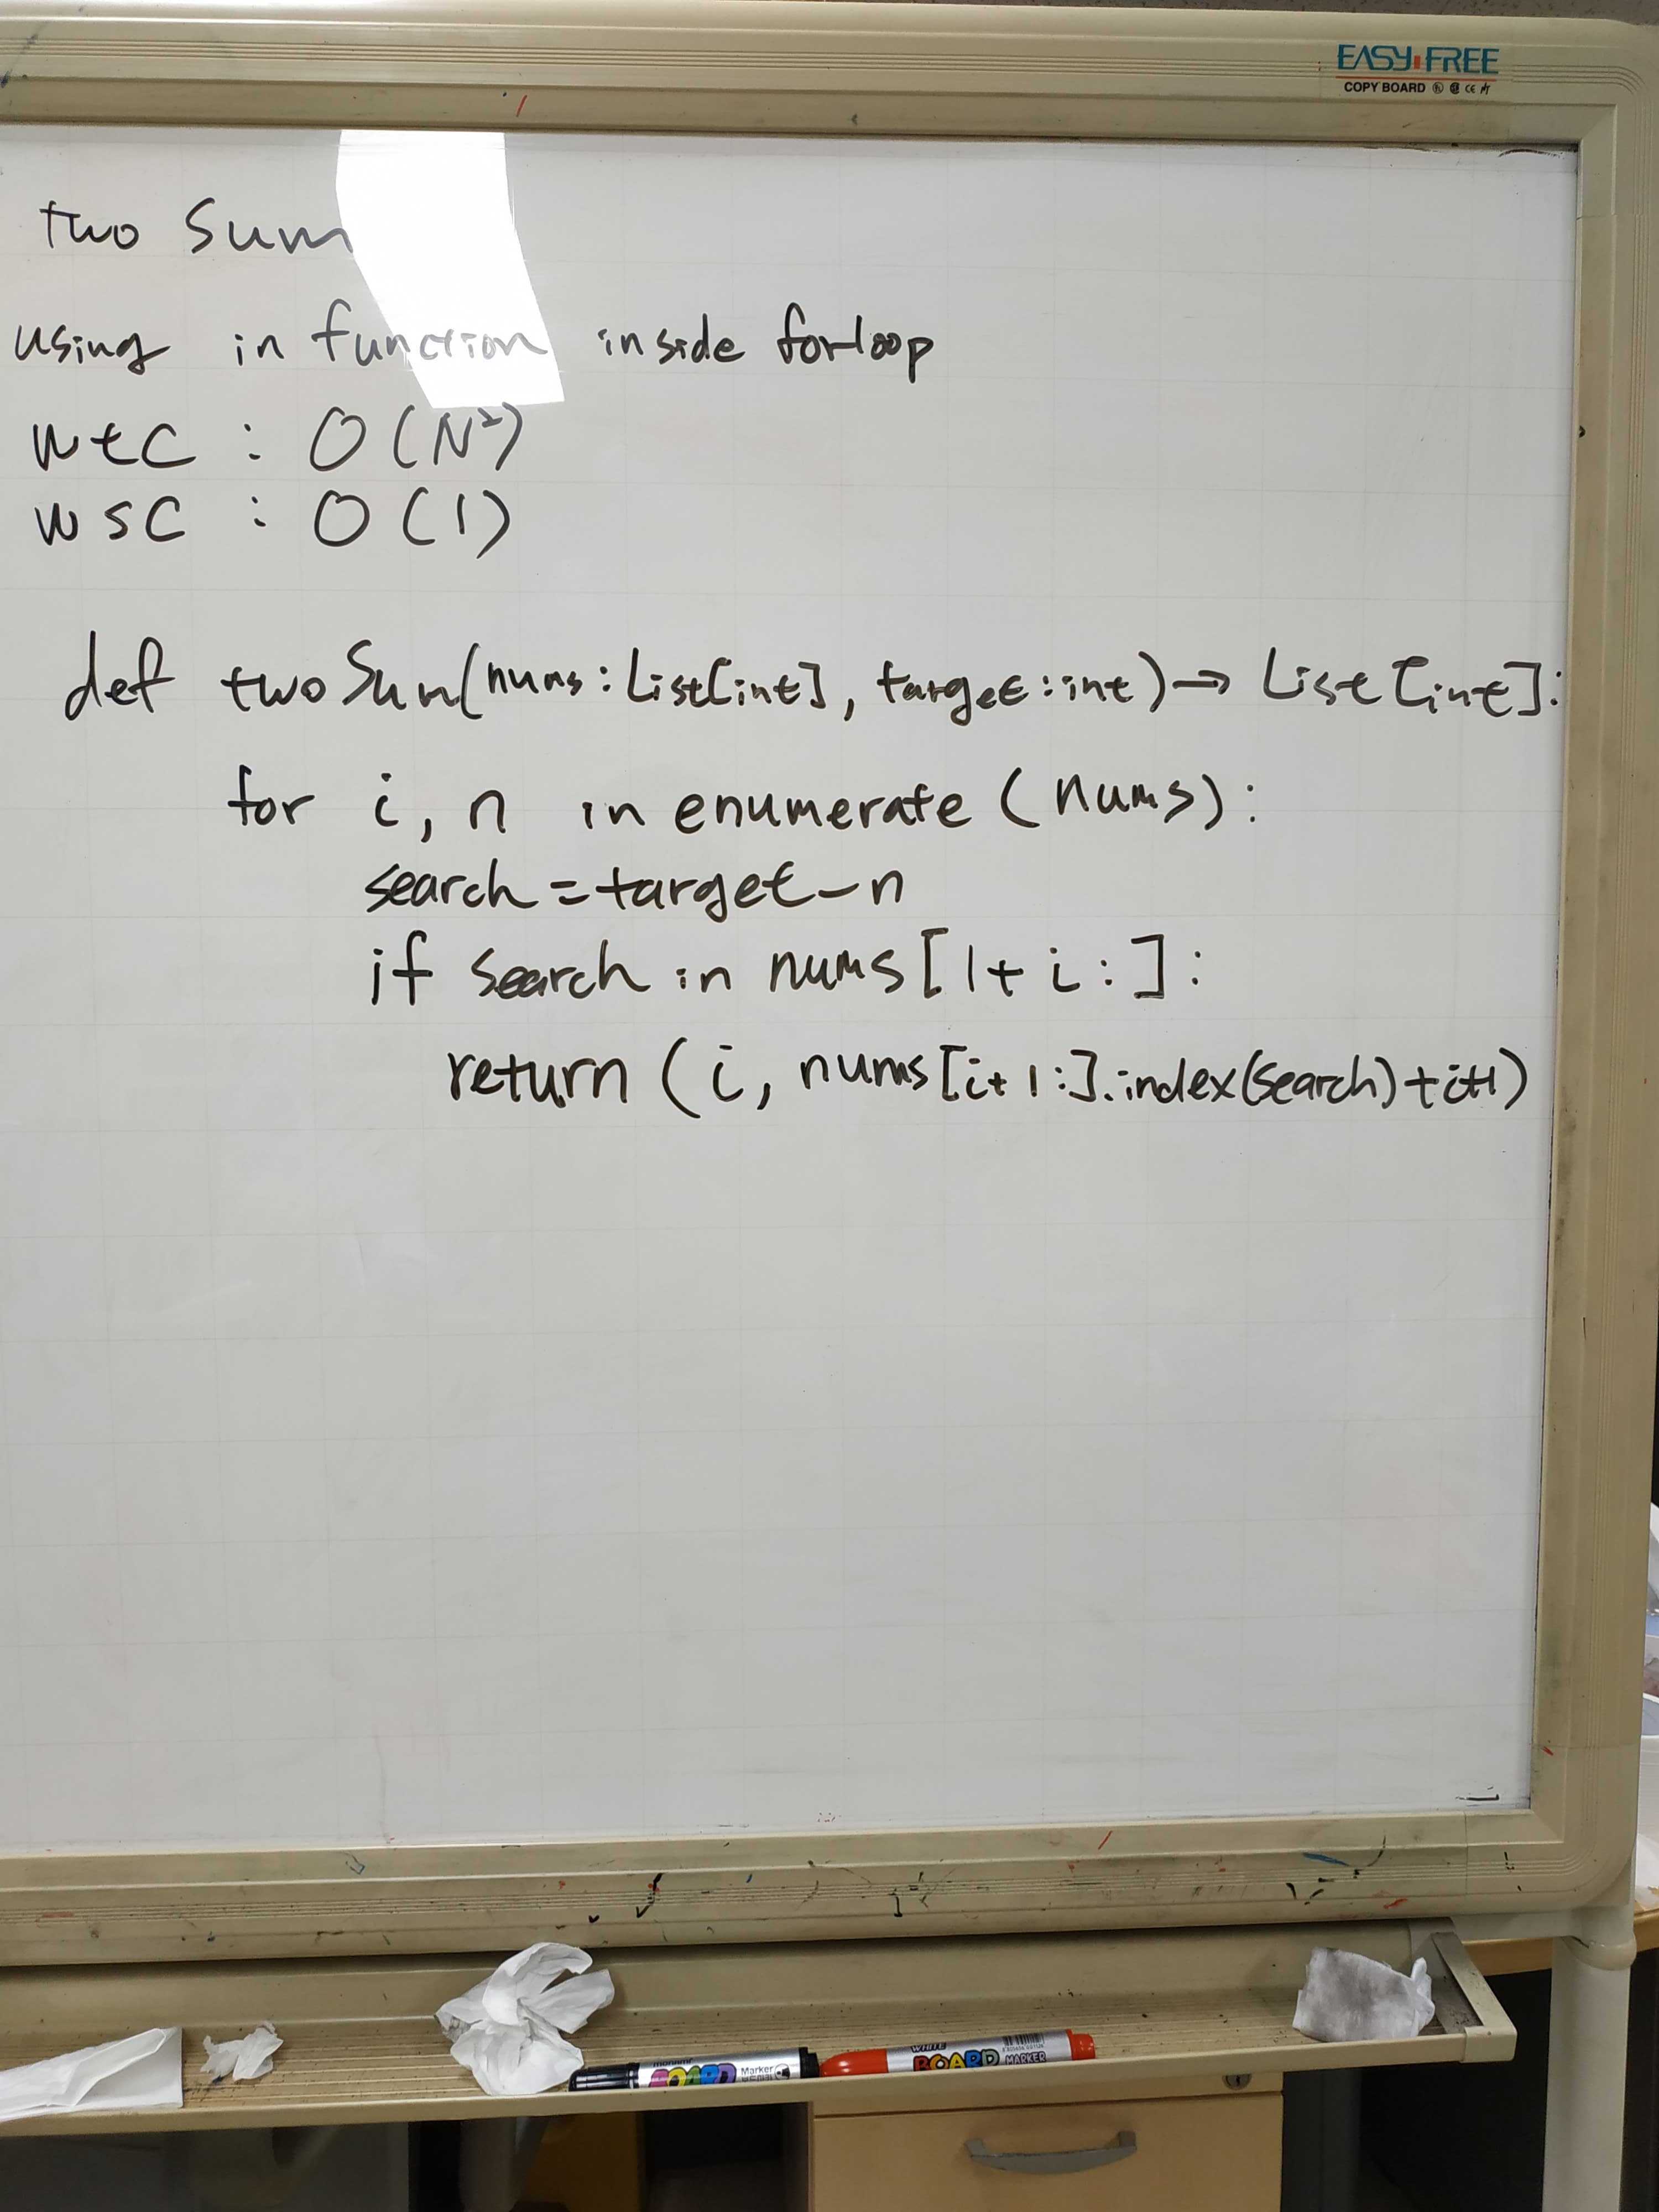 EASY FREE
COPY BOARD
two Sum
using in function inside forloop
wtc : O(N²)
wsc : O(1)
def twoSum(nums:List[int], target:int)→ List[int]:
for i, n in enumerate (nums):
search=target-n
if search in nums[1+i:]:
return (i, nums[i+1:].index(search)+i+1)
monami BOARD Marker
WHITE BOARD MARKER